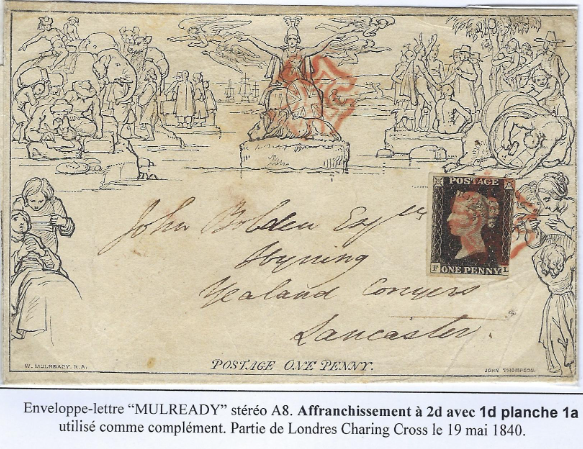 POSTAGE
ONE PENNY
John Bolden Esq
Hyning
Yealand Conyers
Lancaster.
POSTAGE ONE PENNY.
W. MULREADY. R.A.
JOHN THOMPSON.
Enveloppe-lettre “MULREADY” stéréo A8. Affranchissement à 2d avec 1d planche 1a
utilisé comme complément. Partie de Londres Charing Cross le 19 mai 1840.